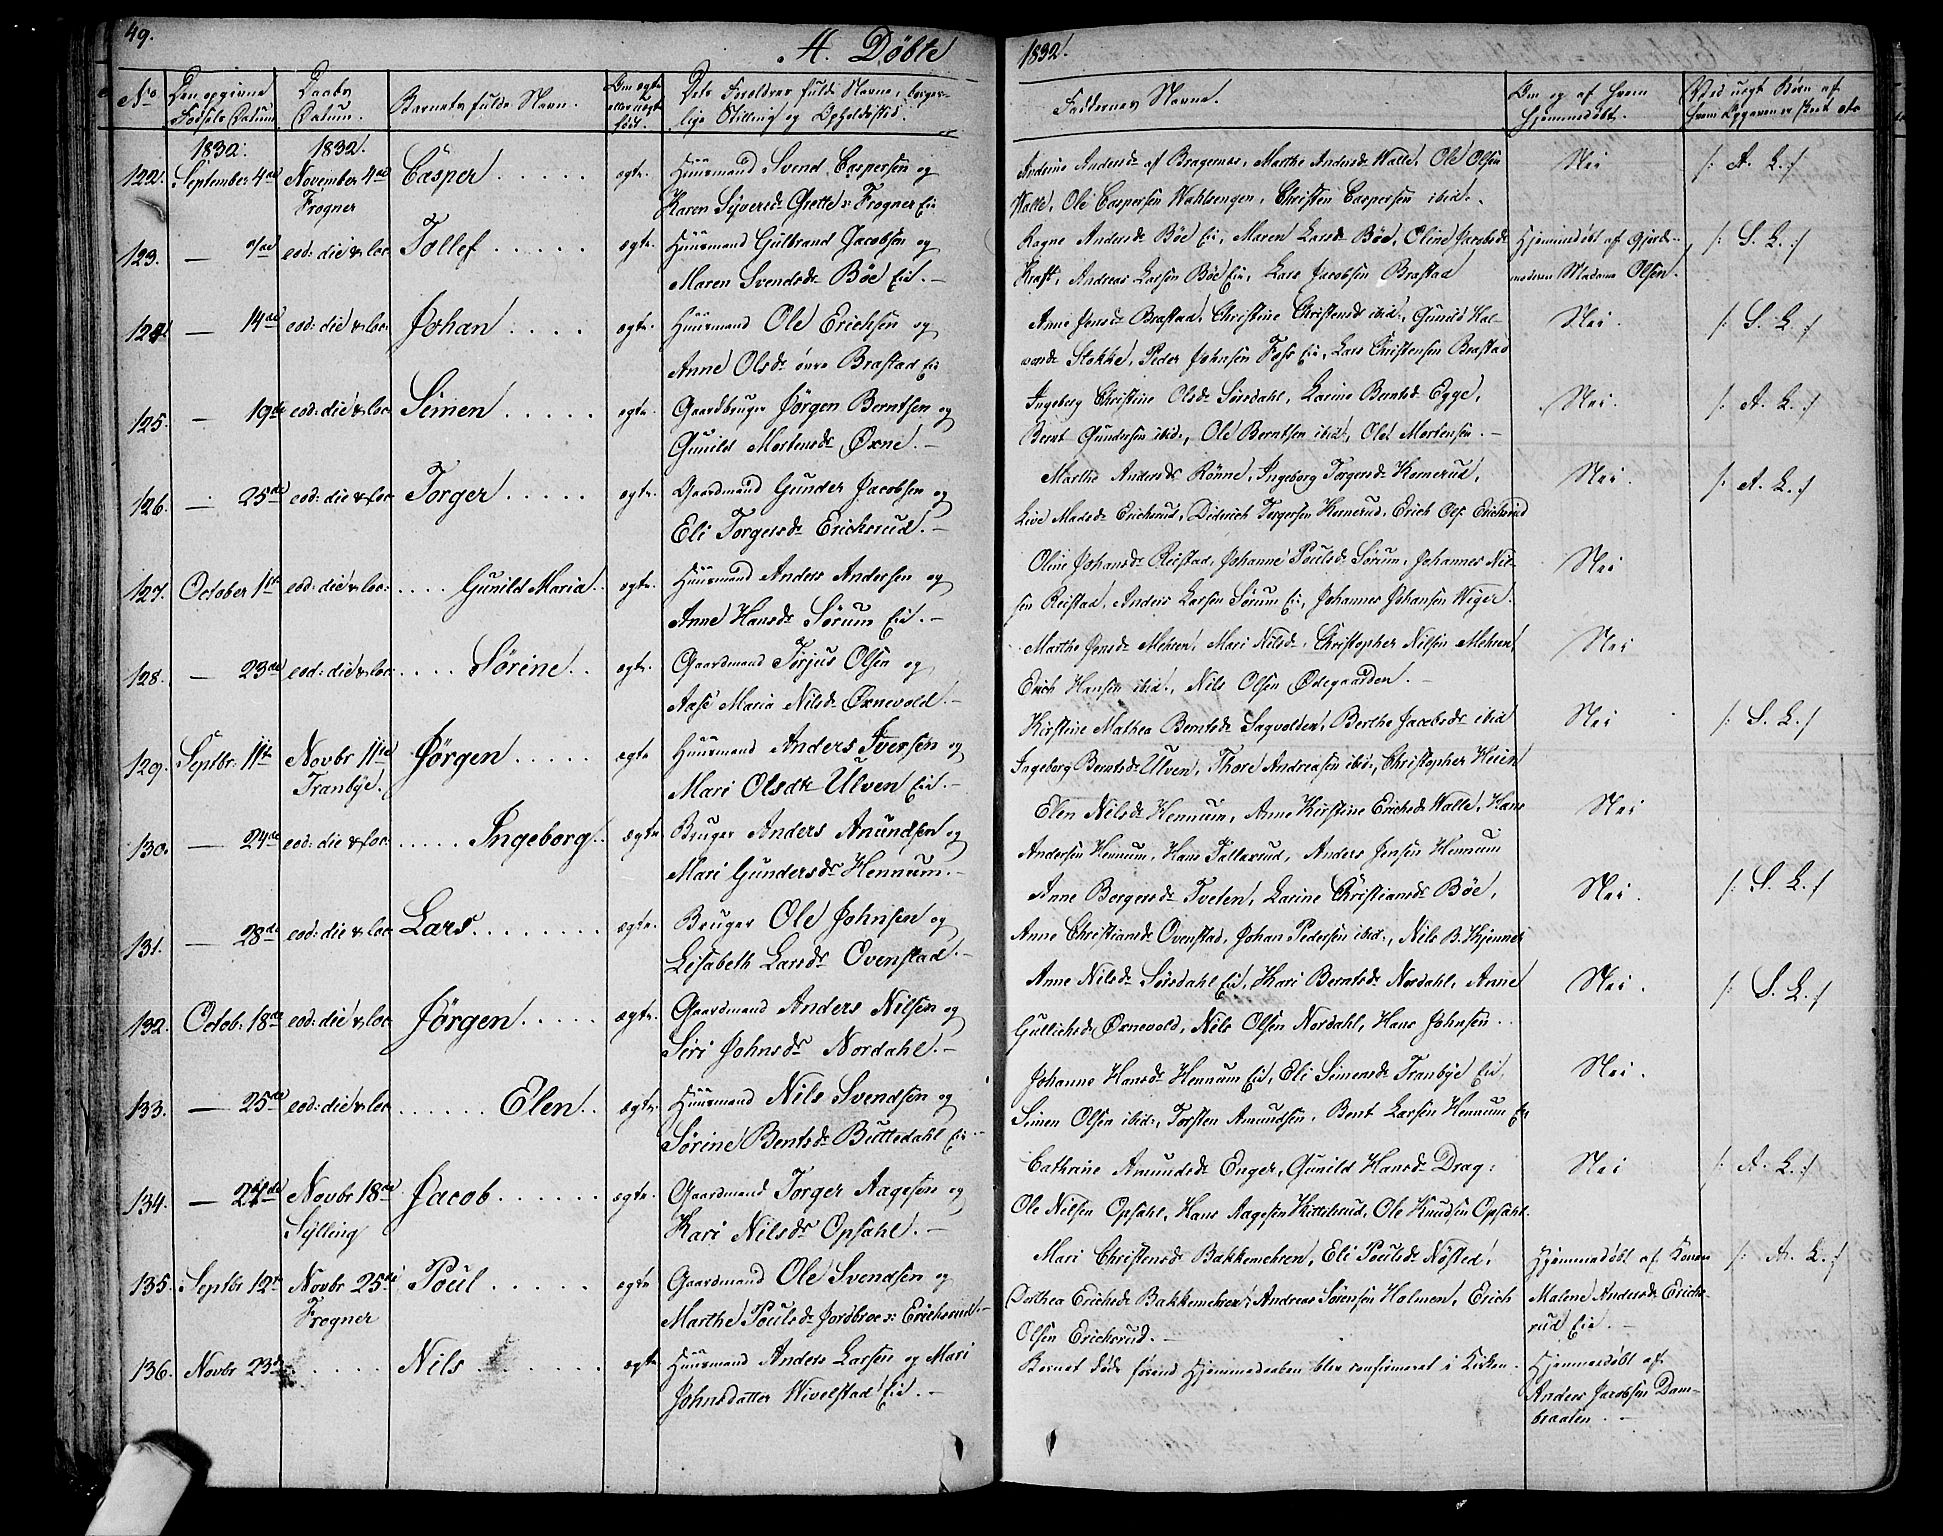 49.
A. Döbte
1832.
No
Den opgivne Fødsels Datum
Daabs Datum.
Barnets fulde Navn.
Om ægte eller uægte født.
Dets Forældres fulde Navne, borgerlige Stilling og Opholdssted.
Faddernes Navne.
Om og af hvem hjemmedøbt.
Ved uægt. Børn af
1832. 1832.
122. September 4de November 4de Frogner Casper ægte. Huusmand Svend Caspersen og
Karen Syversdr Grette v: Frogner Eie
Andrine Andersdr af Bragernes, Marthe Andersdr Walle, Ole Olsen
Walle, Ole Caspersen Wahlsengen, Christen Caspersen ibid.
Nei /: A. L. :/
123. — eod: die & loc Tollef ægte. Huusmand Gulbrand Jacobsen og
Maren Svendsdr Böe Eie. —
Ragne Andersdr Böe Eie, Maren Larsdr Böe, Oline Jacobsdr
Kraft, Andreas Larsen Böe Eie, Lars Jacobsen Brastad
Hjemmedöbt af Gjordemoderen Madame Olsen. /: S. L. :/
124. — 14de eod: die & loc Johan ægte. Huusmand Ole Erichsen og
Anne Olsdr övre Brastad Eie
Anne Jensdr Brastad, Christine Christensdr ibid, Gunild Halvorsdr
Stokke, Peder Johnsen Foss Eie, Lars Christensen Brastad
Nei. /: S. L. :/
125. — 19de eod: die & loc Simen ægte. Gaardbruger Jörgen Berntsen og
Gunild Mortensdr Öxne. —
Ingeborg Christine Olsdr Sörsdahl, Larine Berntsdr Egge,
Bernt Gundersen ibid:, Ole Berntsen ibid:, Ole Mortensen. —
Nei. /: A. L. :/
126. — 25de eod: die & loc Torger ægte. Gaardmand Gunder Jacobsen og
Eli Torgersdr Erichsrud. —
Marthe Andersdr Rönne, Ingeborg Torgersdr Hornerud,
Live Madsdr Erichsrud, Diderich Torgersen Hornerud, Erich Ols: Erichsrud
Nei. /: A. L. :/
127. October 1ste eod: die & loc: Gunild Maria ægte. Huusmand Anders Andersen og
Anne Hansdr Sörum Eie. —
Oline Johansdr Reistad, Johanne Poulsdr Sörum, Johannes Nilsen
Reistad, Anders Larsen Sörum Eie, Johannes Johansen Wiger.
Nei
128. — 23de eod: die & loc Sörine ægte. Gaardmand Torjus Olsen og
Aase Maria Nilsdr Öxnevold. —
Marthe Jensdr Mehren, Mari Nilsdr, Christopher Nilsen Mehren
Erich Hansen ibid:, Nils Olsen Ödegaarden. —
Nei
129. Septbr: 11te Novbr 11te Tranbye. Jörgen ægte Huusmand Anders Iversen og
Mari Olsdr Ulven Eie. —
Kirstine Mathea Berntsdr Sagvolden, Berthe Jacobsdr ibid
Ingeborg Berntsdr Ulven, Thore Andreasen ibid:, Christopher Heien
Nei /: S. L. :/
130. — 24de eod: die & loc Ingeborg ægte Bruger Anders Anundsen og
Mari Gundersdr Hennum. —
Elen Nilsdr Hennum, Anne Kirstine Erichsdr Walle, Hans
Andersen Hennum, Hans Tallaxrud, Anders Jensen Hennum
Nei
131. — 28de eod: die & loc Lars ægte. Bruger Ole Johnsen og
Lisabeth Larsdr Ovenstad. —
Anne Borgersdr Tveten, Larine Christiansdr Böe,
Anne Christiansdr Ovenstad, Johan Pedersen ibid:, Nils B. Kjenner
Nei. /: S. L. :/
132. Octob. 18de eod: die & loc Jörgen ægte. Gaardmand Anders Nilsen og
Siri Johnsdr Nordahl. —
Anne Nilsdr Sörsdahl Eie, Kari Berntsdr Nordahl, Anne
Gullichsdr Öxnevold, Nils Olsen Nordahl, Hans Johnsen.
Nei. /: S. L. :/
133. — 25de eod: die & loc Elen ægte. Huusmand Nils Svendsen og
Sörine Bentsdr Buttedahl Eie —
Johanne Hansdr Hennum Eie, Eli Simensdr Tranbye Eie,
Simen Olsen ibid:, Torsten Amundsen, Bent Larsen Hennum Eie
Nei.
134. — 27de Novbr 18de Sylling Jacob ægte. Gaardmand Torger Aagesen og
Kari Nilsdr Opsahl. —
Cathrine Amundsdr Enger, Gunild Hansdr Drag:
Ole Nilsen Opsahl, Hans Aagesen Kittelsrud, Ole Knudsen Opsahl.
Nei /: A. L. :/
135. Septbr 12te Novbr 25de Frogner Poul ægte Gaardmand Ole Svendsen og
Marthe Poulsdr Jordbroe v: Erichsrud. —
Mari Christensdr Bakkemehren, Eli Poulsdr Nösted,
Dorthea Erichsdr Bakkemehren, Andreas Sörensen Holmen, Erich
Olsen Erichsrud. —
Hjemmedöbt af Konen
Malene Andersdr Erichsrud Eie. — /: A. L. :/
136. Novbr 23de Nils ægte Huusmand Anders Larsen og Mari
Johnsdatter Wivelstad Eie. —
Barnet döde förend Hjemmedaaben blev confirmeret i Kirken.
Hjemmedöbt af
Anders Jacobsen Dambraaten. —